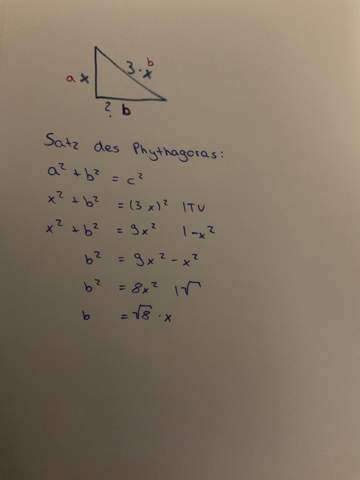 b
a x 3·x
? b
Satz des Phythagoras:
a² + b² = c²
x² + b² = (3x)² |TU
x² + b² = 9x² |-x²
b² = 9x² - x²
b² = 8x² |√
b = √8 · x